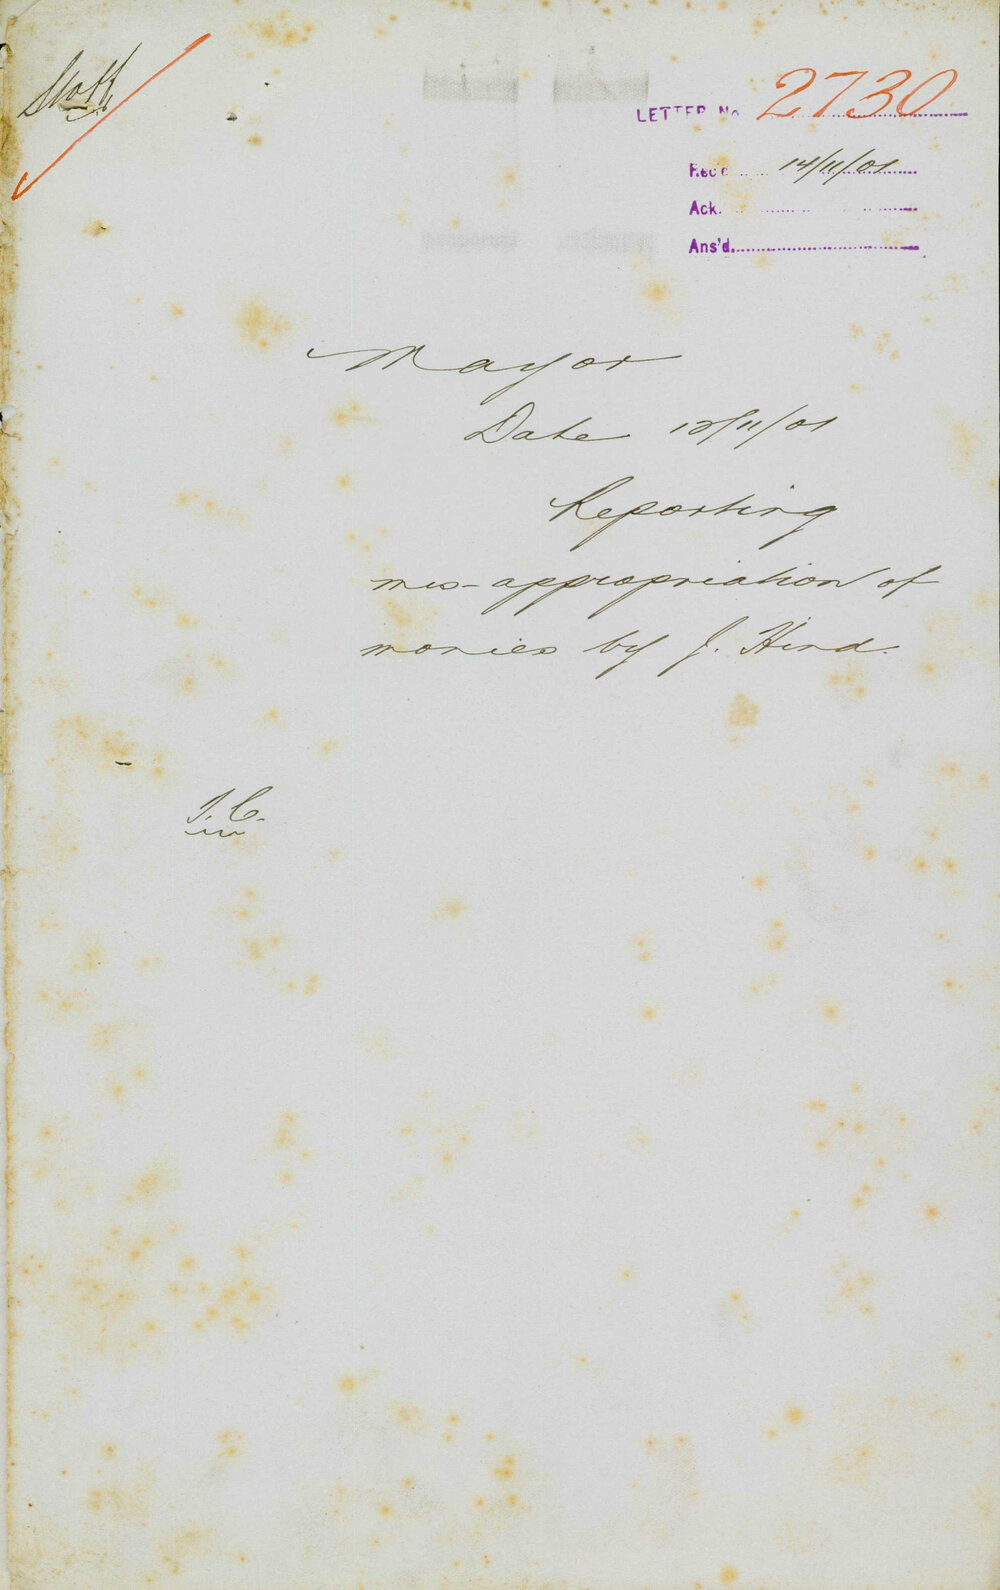 Staff
LETTER No 2730
Rec'd 14/11/01
Ack.
Ans'd.
Mayor
Date 12/11/01
Reporting
mis-appropriation of
monies by J. Hind.
T. C.